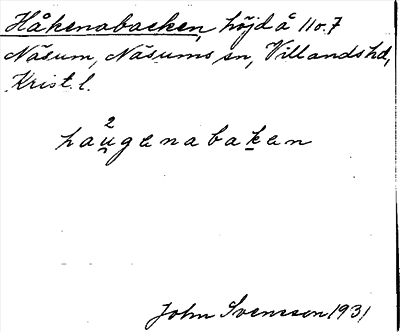 Håkenabacken, höjd å 11 o. 7
Näsum, Näsums sn, Villands hd,
Krist. l.
2
haugenabaken
John Svensson 1931